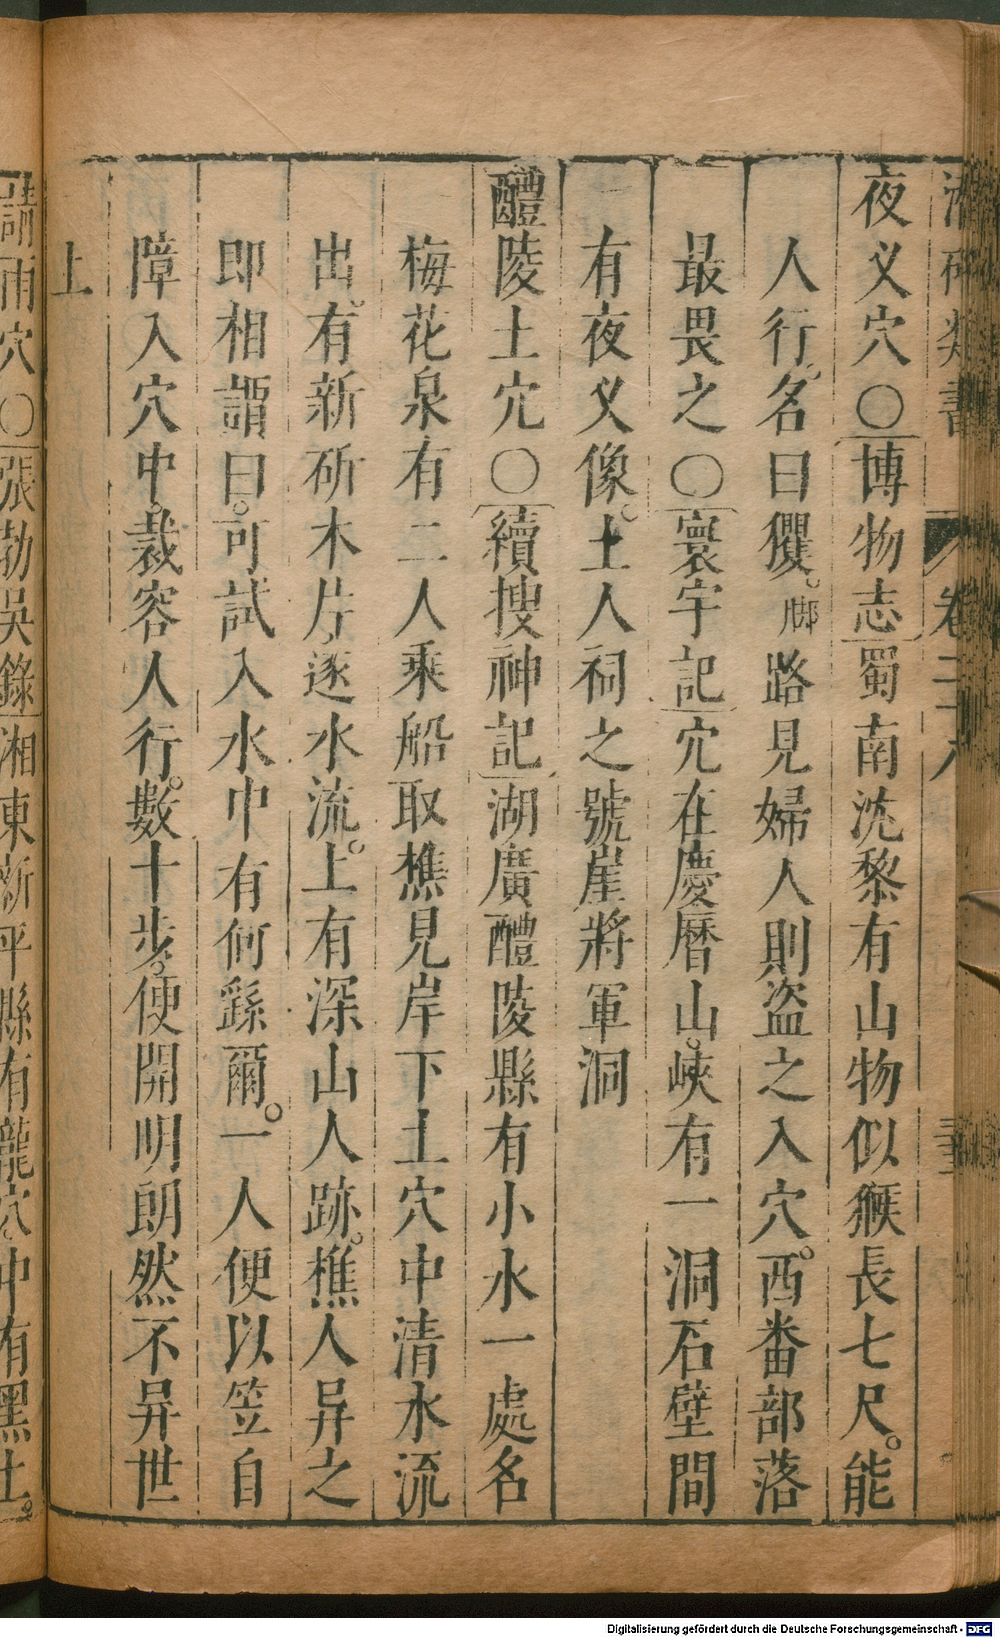 潛确類書 卷二十八
夜叉穴○博物志蜀南沈黎有山物似猴長七尺。能
人行。名曰玃。𨞬路見婦人則盜之入穴。西番部落
最畏之○寰宇記穴在慶曆山。峽有一洞石壁間
有夜叉像。土人祠之號崖將軍洞
醴陵土穴○續搜神記湖廣醴陵縣有小水一處名
梅花泉有二人乘船取樵見岸下土穴中清水流
出。有新斫木片逐水流。上有深山人跡。樵人异之
即相謂曰。可試入水中有何繇爾。一人便以笠自
障入穴中。裁容人行。數十步。便開明朗然不异世
上
請雨穴○張勃吳錄湘東新平縣有龍穴。中有黑土。
Digitalisierung gefördert durch die Deutsche Forschungsgemeinschaft - DFG